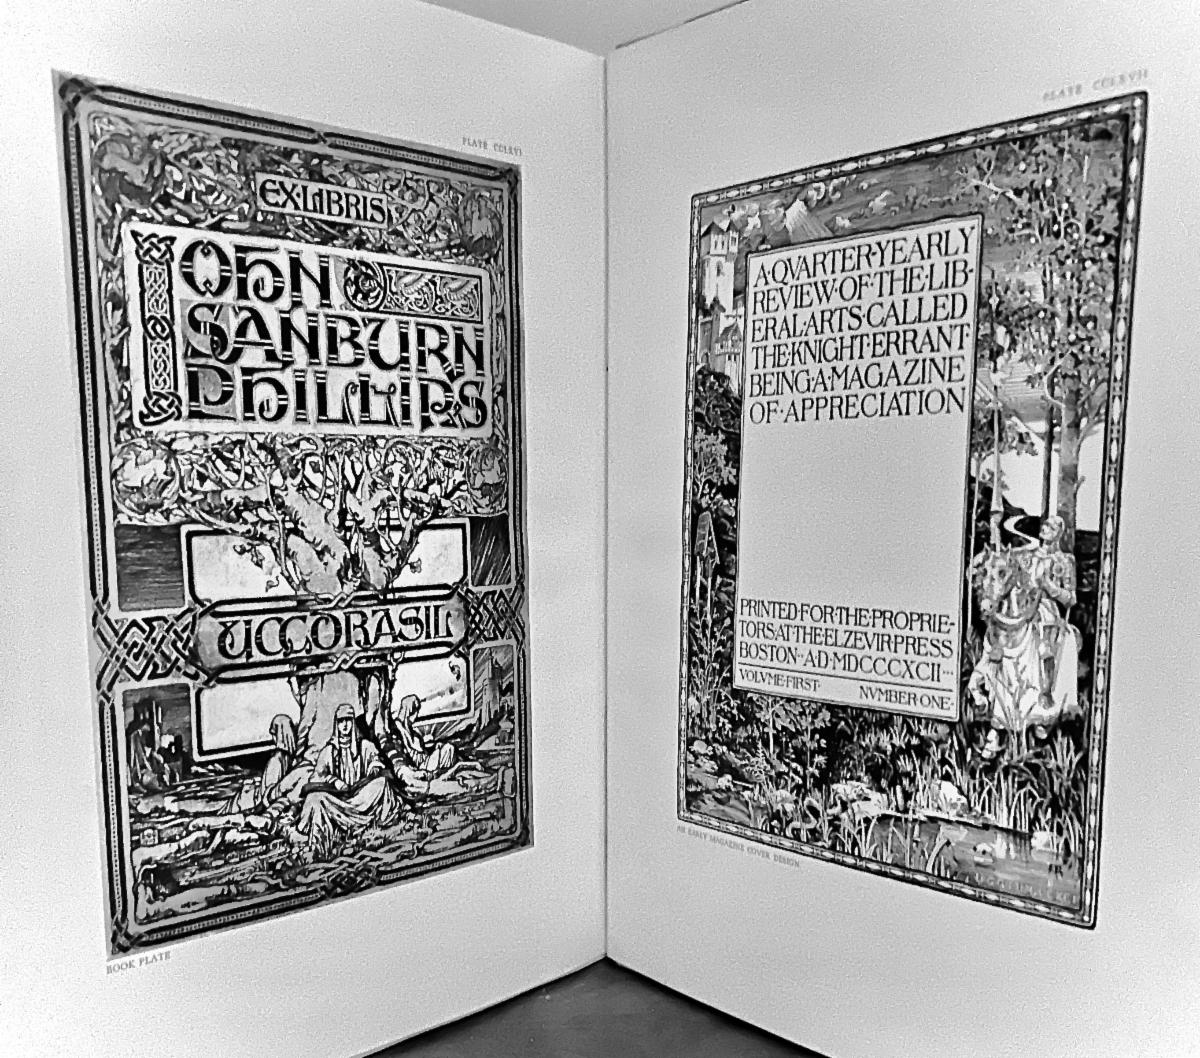 PLATE CCLXVI
EX·LIBRIS
IOHN
SANBURN
PHILLIPS
YGGDRASIL
BOOK PLATE
PLATE CCLXVII
A·QVARTER·YEARLY
REVIEW·OF·THE·LIB-
ERAL·ARTS·CALLED
THE·KNIGHT·ERRANT
BEING·A·MAGAZINE
OF·APPRECIATION
PRINTED·FOR·THE·PROPRIE-
TORS·AT·THE·ELZEVIR·PRESS
BOSTON··A·D·MDCCCXCII···
VOLVME·FIRST· NVMBER·ONE·
AN EARLY MAGAZINE COVER DESIGN